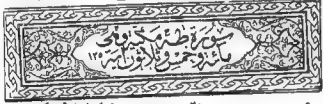 سورة طه مكية وهي
مائة وخمس وثلاثون آية ١٣٥